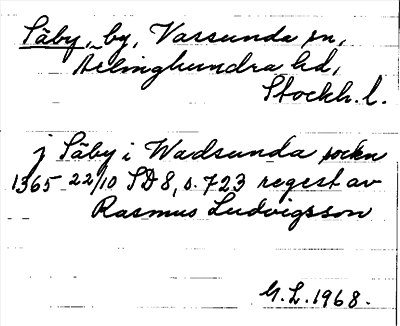 Säby, by, Vassunda sn,
Ärlinghundra hd,
Stockh. l.
j Säby i Wadsunda sockn
1365 22/10 SD 8, s. 723 regest av
Rasmus Ludvigsson
G. L. 1968.